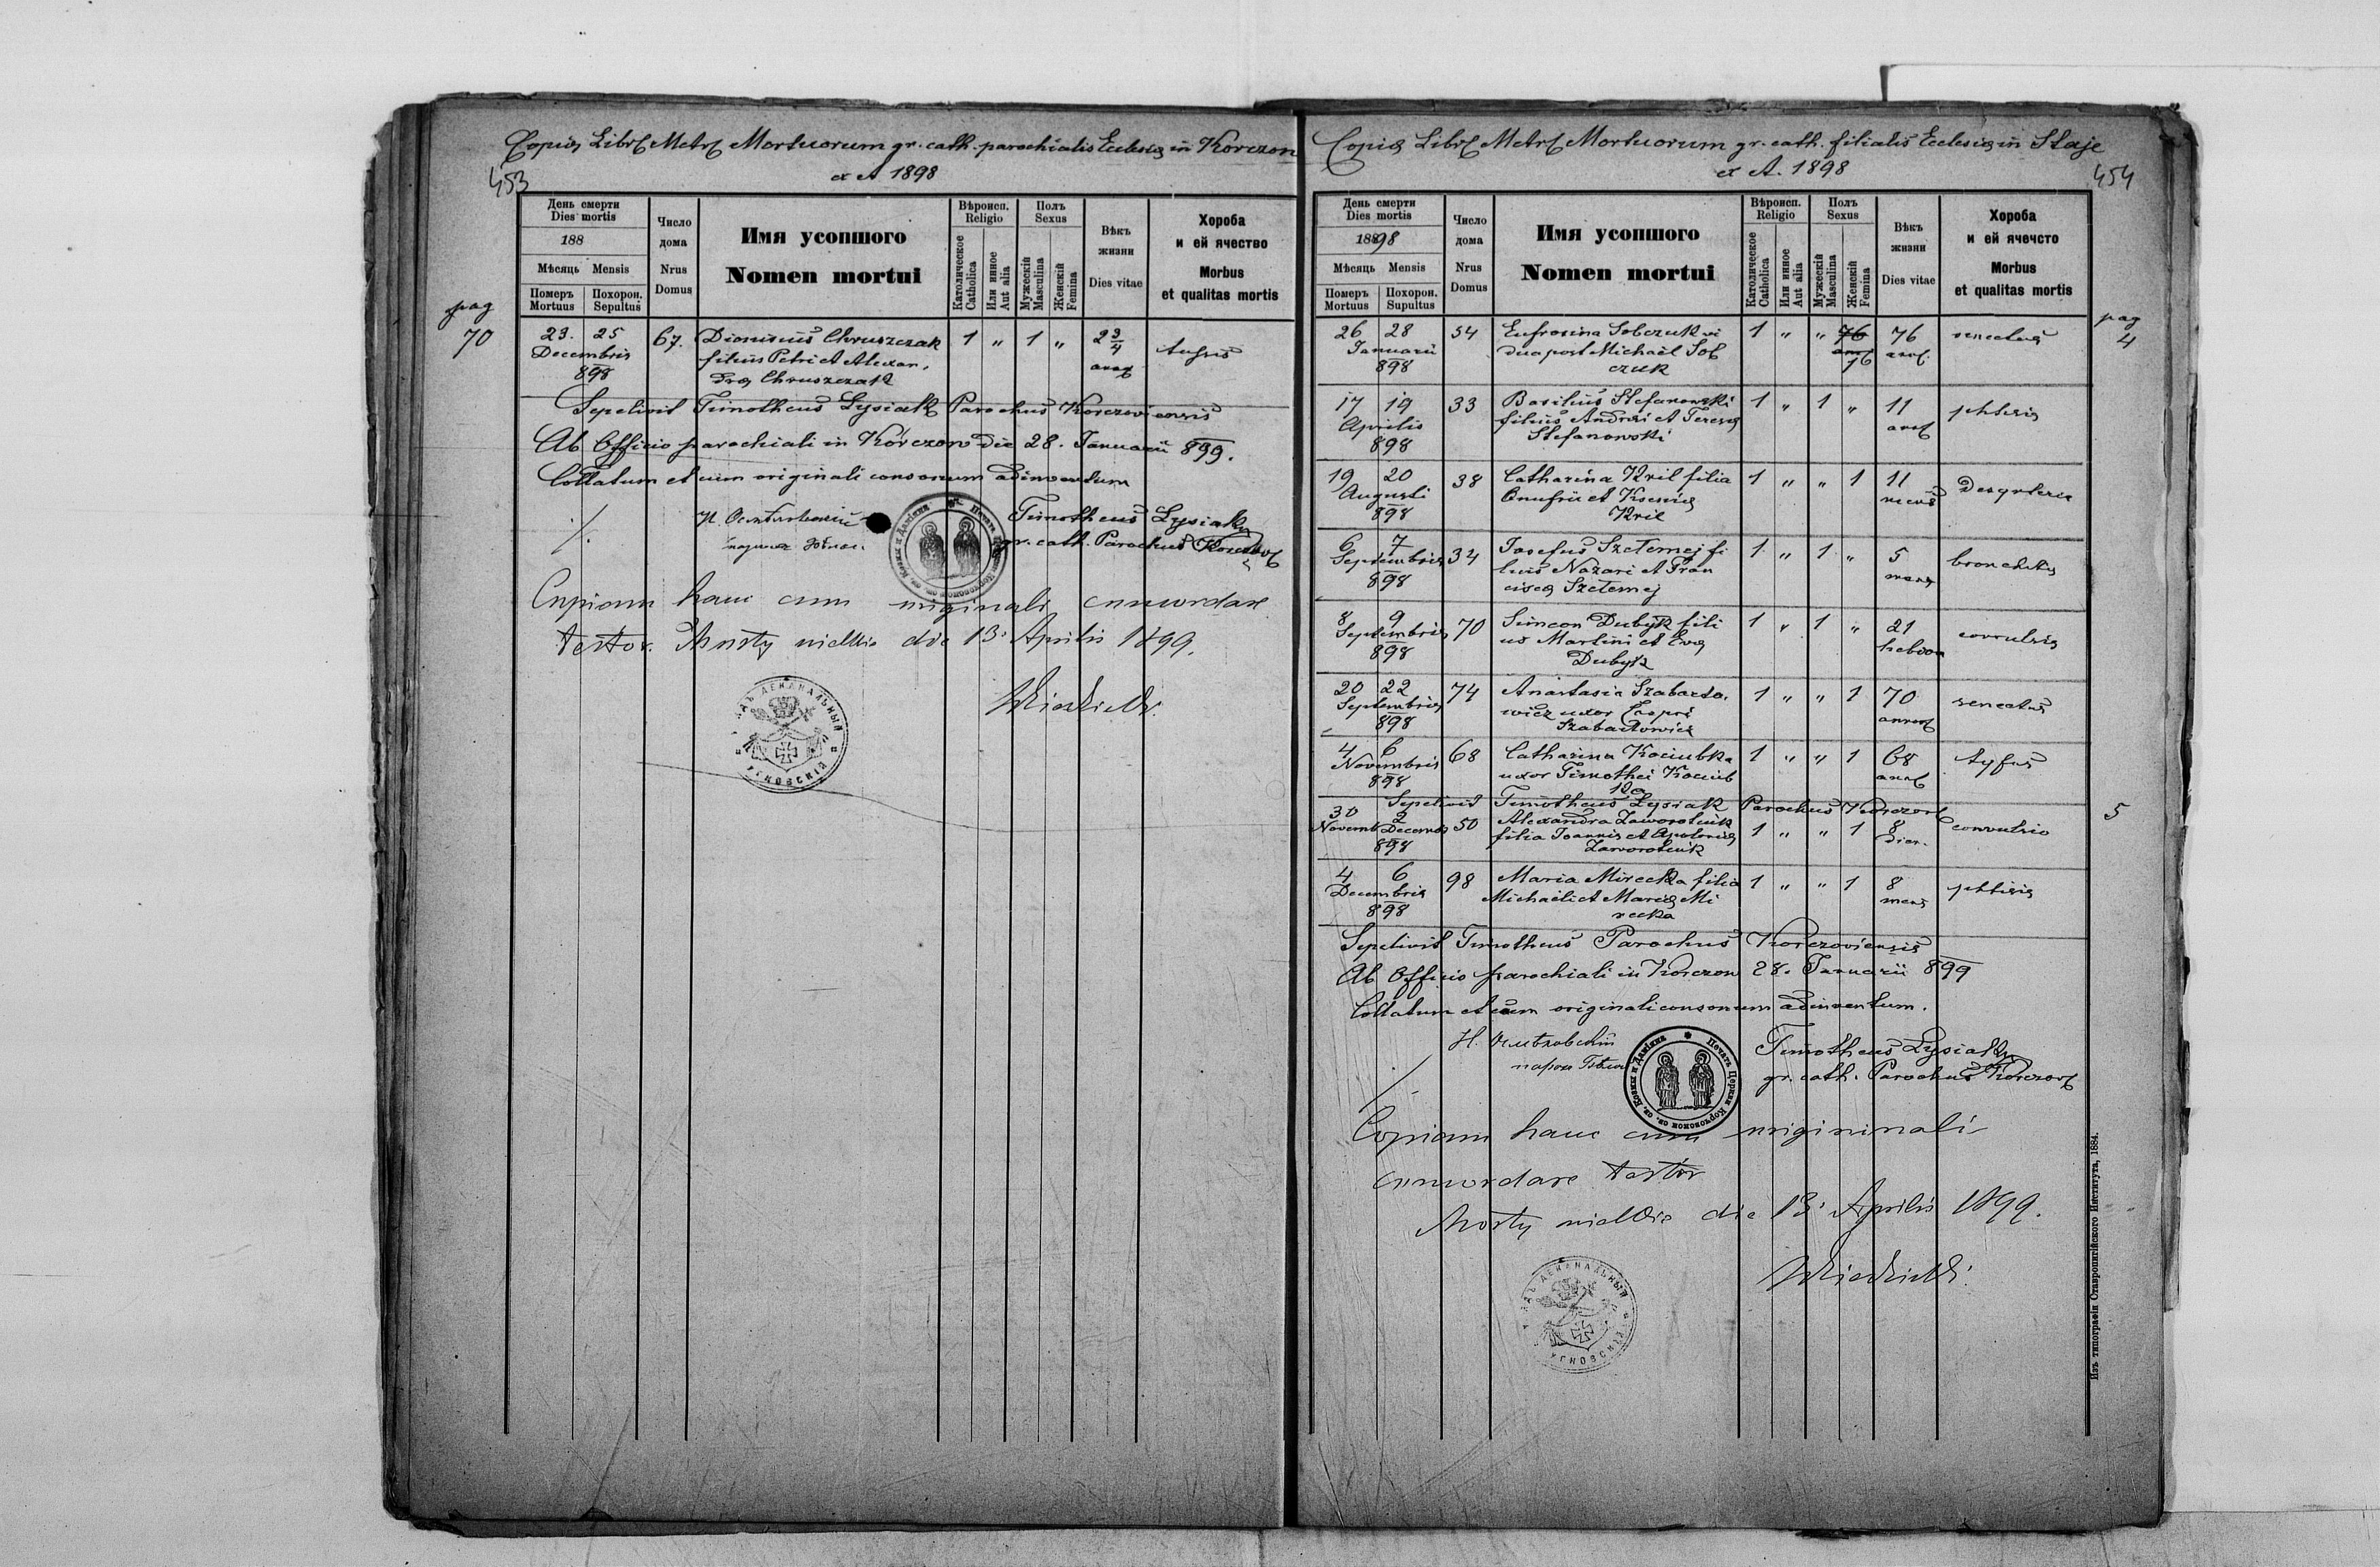 Copia Libri Metr. Mortuorum gr. cath. parochialis Ecclesiæ in Korczow
ex A 1898
453
День смерти
Dies mortis
188
Мѣсяць Mensis
Померъ Похорон.
Mortuus Sepultus
Число
дома
Nrus
Domus
Имя усопшого
Nomen mortui
Вѣроисп.
Religio
Католическое
Catholica
Или инное
Aut alia
Полъ
Sexus
Мужескій
Masculina
Женскій
Femina
Вѣкъ
жизни
Dies vitae
Хороба
и ей ячество
Morbus
et qualitas mortis
pag
70
23. 25 67. Dionisius Chruszczak 1 " 1 " 2 3/4
Decembris filius Petri et Alexan.
898 dra Chruszczak
Sepelivit Timotheus Lysiak Parochus Korczoviensis
Ab Officio parochiali in Korczow die 28. Januarii 899.
Collatum et cum originali consonum adinventum
Timotheus Lysiak
gr. cath. Parochus Korczov
Copiam hanc cum originali concordare
testor. Mosty wielkie die 13. Aprilis 1899.
Copia Libri Metr. Mortuorum gr. cath. filialis Ecclesiæ in Staje
ex A. 1898
454
День смерти
Dies mortis
1898
Мѣсяць Mensis
Померъ Похорон.
Mortuus Supultus
Число
дома
Nrus
Domus
Имя усопшого
Nomen mortui
Вѣроисп.
Religio
Католическое
Catholica
Или инное
Aut alia
Полъ
Sexus
Мужескій
Masculina
Женскій
Femina
Вѣкъ
жизни
Dies vitae
Хороба
и ей ячечсто
Morbus
et qualitas mortis
pag
4
26 28 54 Eufrosina Sobczuk vi 1 " " 76 senectus
Januarii dua post Michael Sob
898 czuk
17 19 33 Basilius Stefanowski 1 " 1 " 11 phtisis
Aprilis filius Andrei et Teresæ
898 Stefanowski
19 20 38 Catharina Kril filia 1 " " 1 11
Augusti Onufrii et Kseniæ
898 Kril
6 7 34 Josefus Szetemej fi 1 " 1 " 5
Septembris lius Nazari et Fran
898 ciscæ Szetemej
8 9 70 Simeon Dubyk fili 1 " 1 " 21
Septembris us Martini et Evæ
898 Dubyk
20 22 74 Anastasia Szabato. 1 " " 1 70 senectus
Septembris wicz uxor
898
4 6 68 Catharina Kociubka 1 " " 1 68 tyfus
Novembris uxor Timothei Kociub
898 ka
Sepelivit Timotheus Lysiak Parochus Korczov
5
30 2 50 Alexandra Zaworotnik 1 " " 1 8 convulsio
Novemb Decembr filia Joannis et Apoloniæ dier.
898 Zaworotnik
4 6 98 Maria Mirecka filia 1 " " 1 8 phtisis
Decembris Michaeli et Mariæ Mi mens
898 recka
Sepelivit Timotheus Parochus Korczoviensis
Ab Officio parochiali in Korczow 28. Januarii 899
Collatum et cum originali consonum adinventum.
Timotheus Lysiak
gr. cath. Parochus Korczov
Copiam hanc cum originali
concordare testor
Mosty wielkie die 13. Aprilis 1899.
Изъ типографіи Ставропигійского Института, 1884.